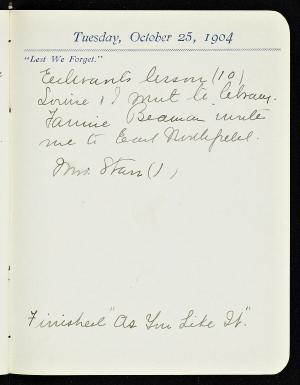 Tuesday, October 25, 1904
"Lest We Forget."
lesson (10)
Louise & I went to library.
Fannie Beaman wrote
me to East Northfield.
Mrs. Starr (1)
Finished "As You Like It."